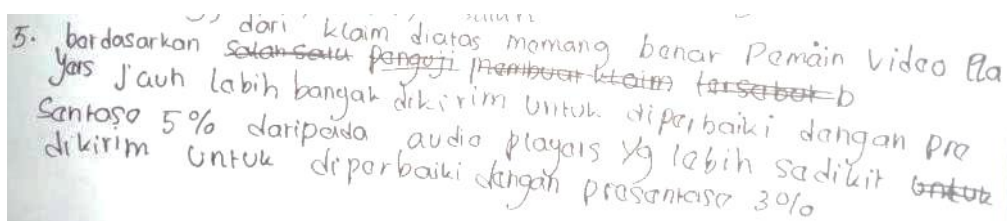 5. berdasarkan dari klaim diatas memang benar Pemain Video Pla
yers Jauh lebih banyak dikirim untuk diperbaiki dengan pre
Sentase 5% daripada audio players yg lebih sedikit
dikirim untuk diperbaiki dengan presentase 3%